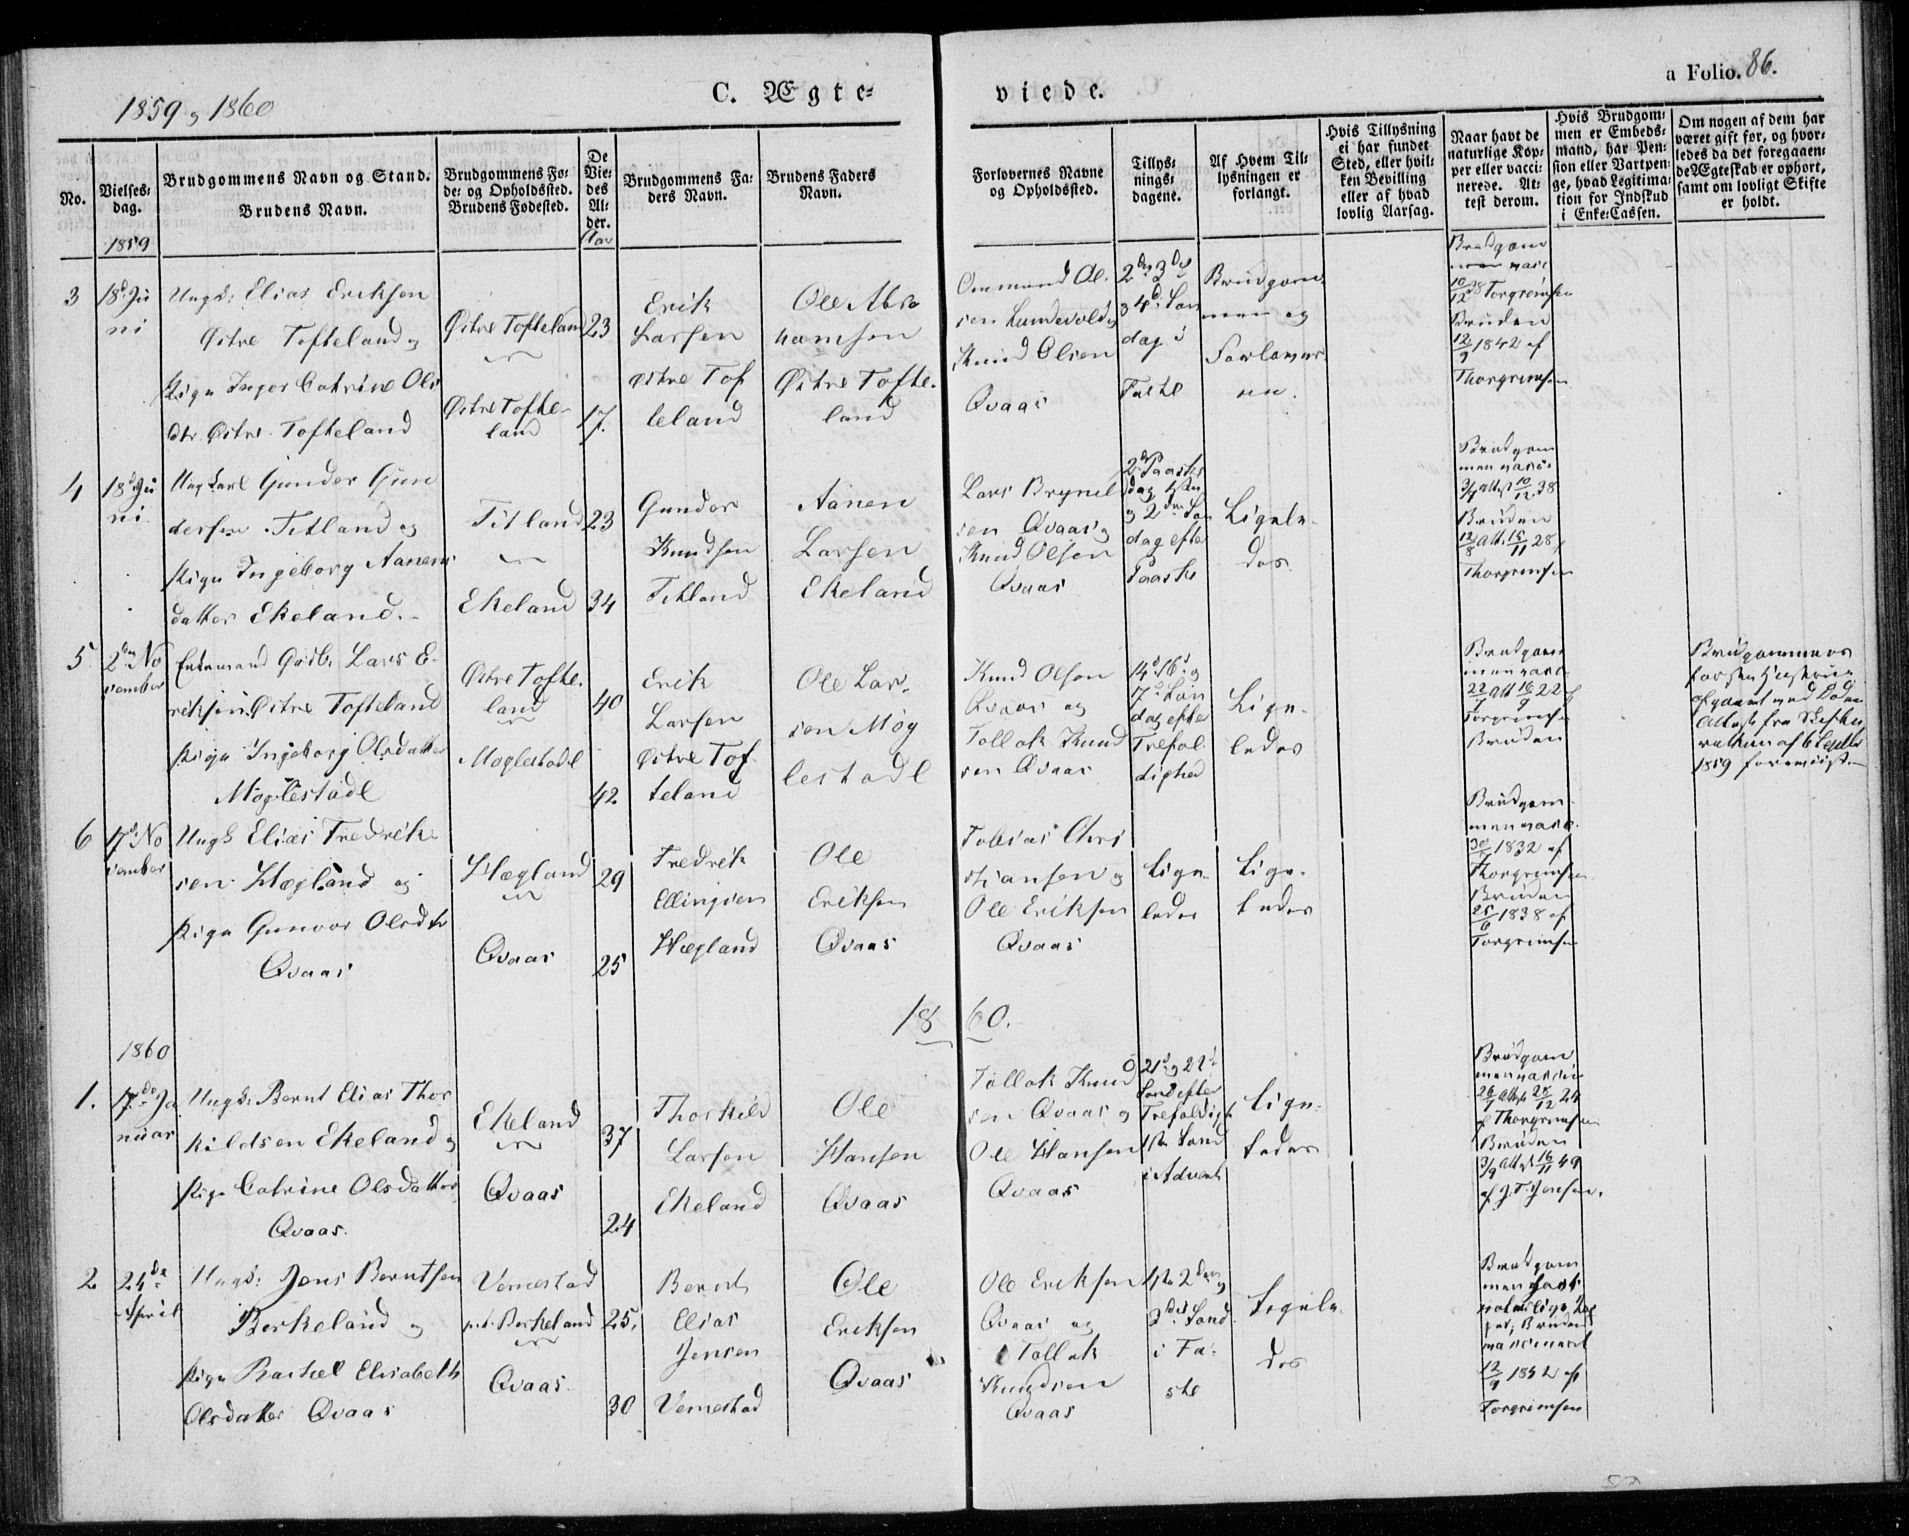 1859 og 1860
C. Ægte=
viede.
a Folio. 86.
No.
Vielses-
dag.
Brudgommens Navn og Stand.
Brudens Navn.
Brudgommens Fø-
de- og Opholdssted.
Brudens Fødested.
De
Vie-
des
Al-
der.
Brudgommens Fa-
ders Navn.
Brudens Faders
Navn.
Forlovernes Navne
og Opholdssted.
Tillys-
nings-
dagene.
Af Hvem Til-
lysningen er
forlangt.
Hvis Tillysning
ei har fundet
Sted, eller hvil-
ken Bevilling
eller af hvad
lovlig Aarsag.
Naar havt de
naturlige Kop-
per eller vacci-
nerede. At-
test derom.
Hvis Brudgom-
men er Embeds-
mand, har Pen-
sion eller Vartpen-
ge, hvad Legitima-
tion for Indskud
i Enke-Cassen.
Om nogen af dem har
været gift før, og hvor-
ledes da det foregaaen-
de Ægteskab er ophørt,
samt om lovligt Skifte
er holdt.
1859
3
18d Ju
ni
Ungk: Elias Eriksen
Østre Tofteland og
Pige Inger Catrine Ols
dtr Østre Tofteland
Østre Tofteland
Østre Tofte-
land
23
17.
Erik
Larsen
Østre Tof
teland
Ole Abra
hamsen
Østre Tofte-
land
Ommund Ol-
sen Lundevold og
Knud Olsen
Qvaas
2den 3die
og 4de Søn
dag i
Faste
Brudgom-
men og
Forlover
ne.
Brudgom
men vacc
10/12 38 Torgrimsen
Bruden
12/9 1842 af
Thorgrimsen
4
18d Ju
ni
Ungkarl Gunder Gun
dersen Titland og
Pige Ingeborg Aanens
datter Ekeland.
Titland
Ekeland
23
34
Gunder
Knudsen
Titland
Aanen
Larsen
Ekeland
Lars Brynel
sen Qvaas og
Knud Olsen
Qvaas
2den Paaske
dag 1ste
og 2den Søn
dag efter
Paaske
Ligele-
des
Brudgom
men vacc
3/7 Att 10/12 38
Bruden
12/8 Att. 15/11 28 af
Thorgrimsen
5
2den No
vember
Enkemand Gdb. Lars E-
riksen Østre Tofteland
Pige Ingeborg Olsdatter
Møglestadl
Østre Tofte-
land
Moglestadl
40
42
Erik
Larsen
Østre Tof
teland
Ole Lar-
sen Møg
lestadl
Knud Olsen
Qvaas og
Tollak Knud
sen Qvaas
14d 16d og
17d Søn
dag efter
Trefol-
dighed
Lige-
ledes
Brudgom
men vacc
22/7 Att 16/9 22 af
Torgrimsen
Bruden
Brudgommens
1859
6
17d No
vember
Ungk Elias Fredrik-
sen Hægland og
Pige Gunvor Olsdtr
Qvaas
Hægland
Qvaas
29
25
Fredrik
Ellingsen
Hægland
Ole
Eriksen
Qvaas
Tobias Chri
stiansen og
Ole Eriksen
Qvaas
Lige-
ledes
Lige-
ledes
Brudgom-
men vacc.
30/7 1832 af
Thorgrimsen
Bruden
25/6 1838 af
Torgrimsen
1860.
1860
1.
17de Ja
nuar
Ungk: Bernt Elias Thor
kildsen Ekeland og
Pige Catrine Olsdatter
Qvaas.
Ekeland
Qvaas
37
24
Thorkild
Larsen
Ekeland
Ole
Hansen
Qvaas
Tollak Knud
sen Qvaas og
Ole Hansen
Qvaas
21d og 22d
Sønd efter
Trefoldigh
1ste Sønd
i Advent
Lige-
ledes
Brudgom
men vaccin
26/7 Att 25/12 24
af Thorgrimsen
Bruden
3/9 Att 16/11 49
af J. T. Jensen.
2
24de
April
Ungk: Jens Berntsen
Birkeland og
Pige Rachel Elisabeth
Olsdatter Qvaas
Vemestad
Birkeland
Qvaas
25.
30
Bernt
Elias
Jensen
Vemestad
Ole
Eriksen
Qvaas
Ole Eriksen
Qvaas og
Tollak
Knudsen
Qvaas
1ste 2den og
3die Sønd
i Fa-
ste
Ligele
des
Brudgom
men havt
naturlige Kop
per, Bruden
vaccineret
12/9 1832 af
Torgrimsen